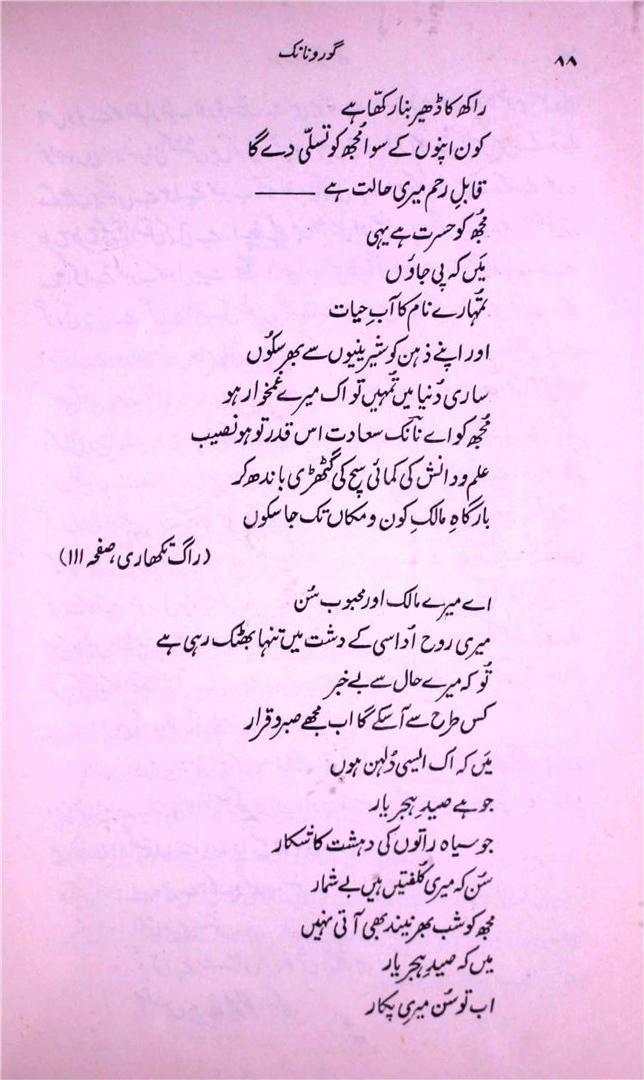 ۸۸
گورونانک
راکھ کا ڈھیر بنا رکھّا ہے
کون اپنوں کے سوا مُجھ کو تسلّی دے گا
قابلِ رحم میری حالت ہے ———
مُجھ کو حسرت ہے یہی
مَیں کہ پی جاؤں
تُمہارے نام کا آبِ حیات
اور اپنے ذہن کو شیرینیوں سے بھر سکُوں
ساری دُنیا میں تُمہیں تو اک میرے غمخوار ہو
مُجھ کو اے نانک سعادت اس قدر تو ہو نصیب
علم و دانش کی کمائی سچ کی گٹھڑی باندھ کر
بارگاہِ مالکِ کون و مکاں تک جا سکوں
(راگ تکھاری، صفحہ ۱۱۱)
اے میرے مالک اور محبوب سُن
میری روح اُداسی کے دشت میں تنہا بھٹک رہی ہے
تُو کہ میرے حال سے بے خبر
کس طرح سے آسکے گا اب مجھے صبر و قرار
مَیں کہ اک ایسی دُلہن ہوں
جو ہے صیدِ ہجرِ یار
جو سیاہ راتوں کی دہشت کا شکار
سُن کہ میری کُلفتیں ہیں بے شمار
مجھ کو شب بھر نیند بھی آتی نہیں
میں کہ صیدِ ہجرِ یار
اب تو سُن میری پکار